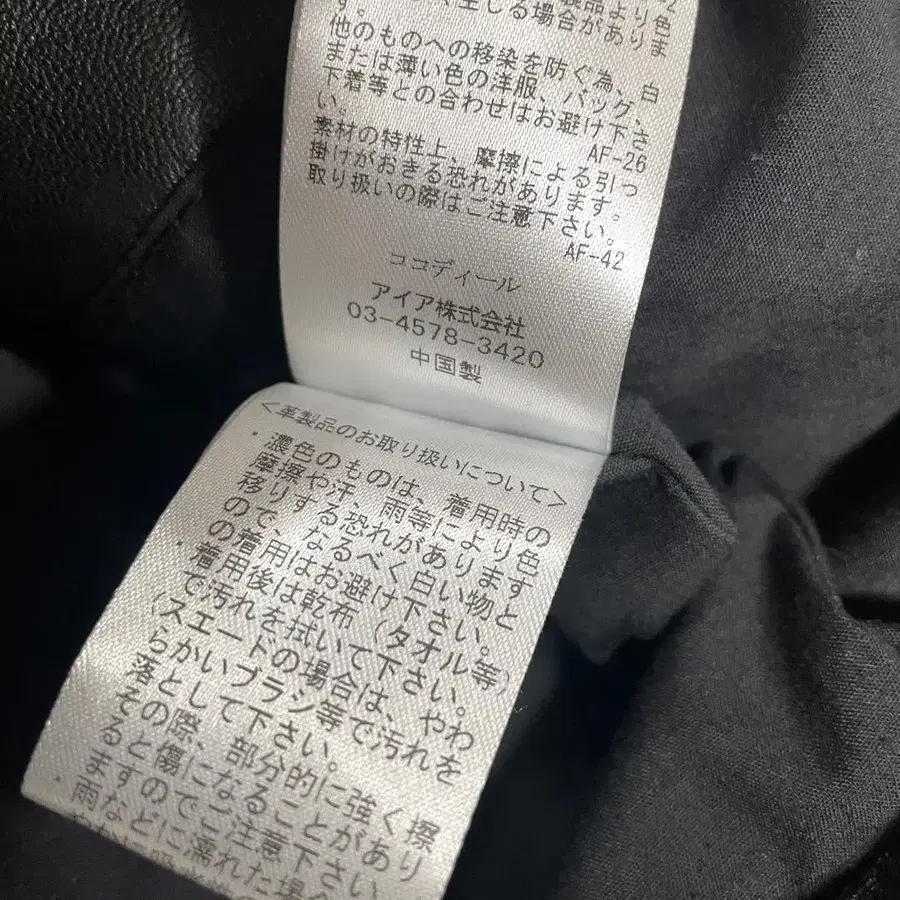 製品より色
く生じる場合がありま
す。
他のものへの移染を防ぐ為、白
または薄い色の洋服、バッグ、
下着等との合わせはお避け下さ
い。
AF-26
素材の特性上、摩擦による引っ
掛けがおきる恐れがあります。
取り扱いの際はご注意下さい。
AF-42
ココディール
アイア株式会社
03-4578-3420
中国製
<革製品のお取り扱いについて>
・濃色のものは、着用時の
摩擦や汗、雨等により色
移りする恐れがあります
ので、なるべく白い物と
の着用はお避け下さい。
着用後は乾布(タオル等)
で汚れを拭いて下さい。
(スエードの場合は、やわ
らかいブラシ等で汚れを
落として下さい。
その際、部分的に強く擦
ると傷になることがあり
ますのでご注意下さい
・雨などに濡れた場合